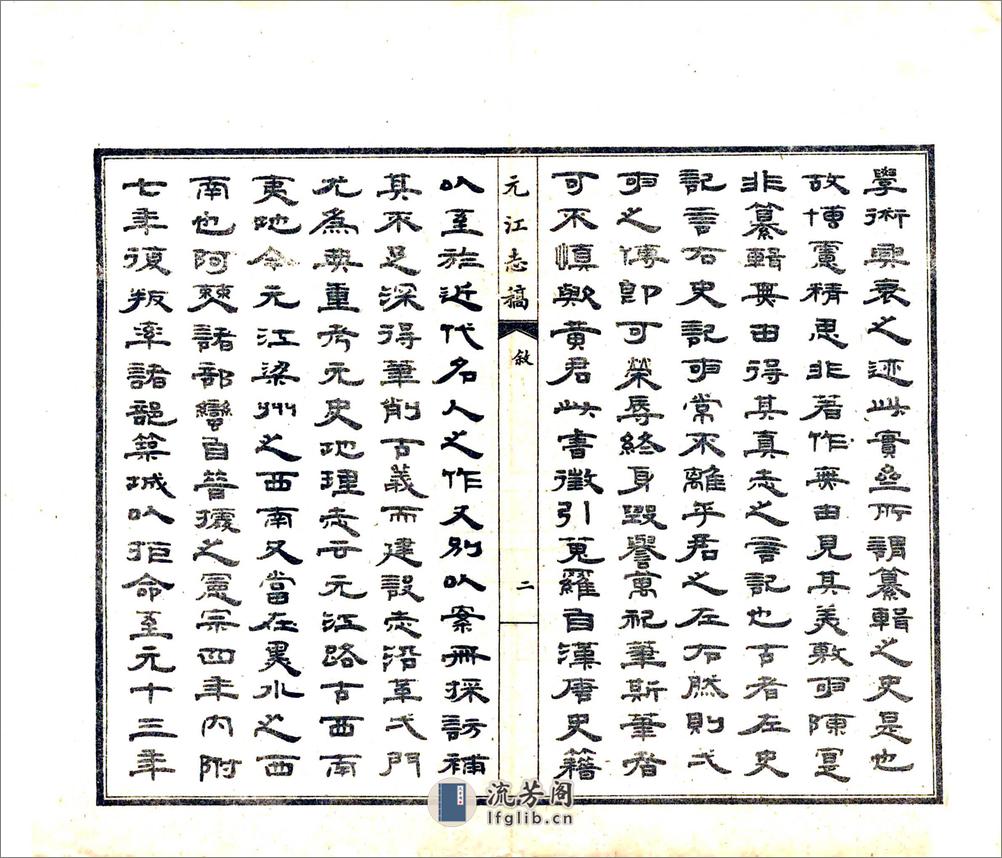 學術興衰之迹此實所謂纂輯之史是也
故博憲精思非著作無由見其美敷事陳寔
非纂輯無由得其真志之言記也古者左史
記言右史記事常不離乎君之左右然則弌
事之傳即可榮辱終身毀譽萬祀筆斯筆者
可不慎歟黃君此書徵引蒐羅自漢唐史籍
元江志稿
敘
二
以至於近代名人之作又別以案冊採訪補
其不足深得筆削古義而建設志沿革弌門
尤為典重考元史地理志云元江路古西南
夷地今元江梁州之西南又當在黑水之西
南也阿僰諸部蠻自昔據之憲宗四年內附
七年復叛率諸部築城以拒命至元十三年
流芳阁
lfglib.cn